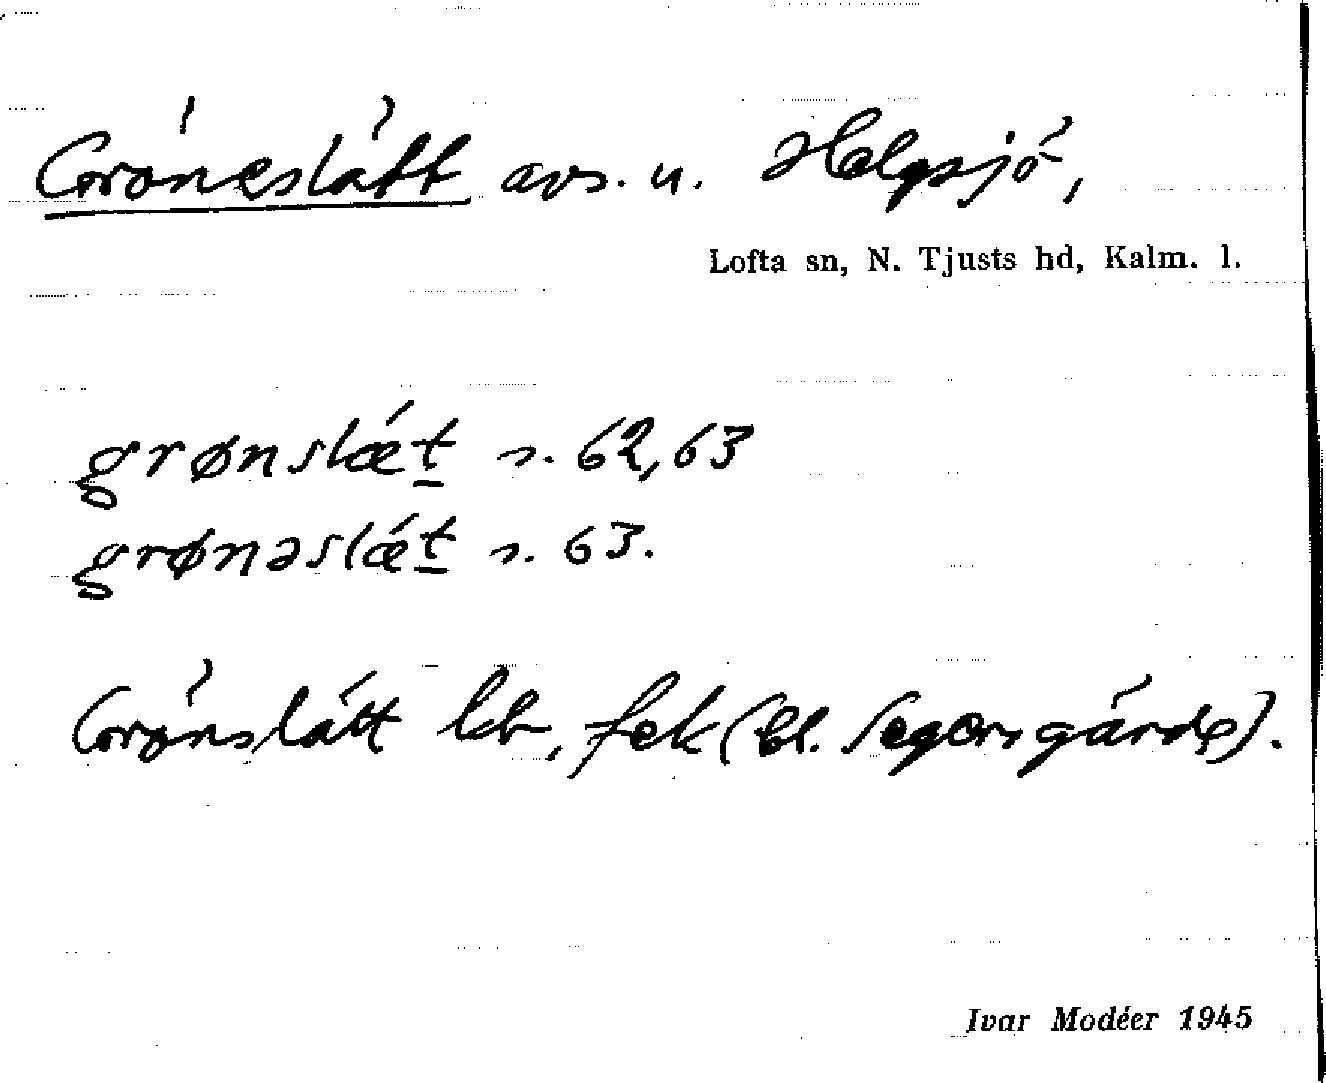 Gröneslätt avs. u. Helgsjö,
Lofta sn, N. Tjusts hd, Kalm. l.
grønslǽt s. 62, 63
grønəslǽt s. 63.
Grönslätt lht, fek (bl. Segersgärde).
Ivar Modéer 1945